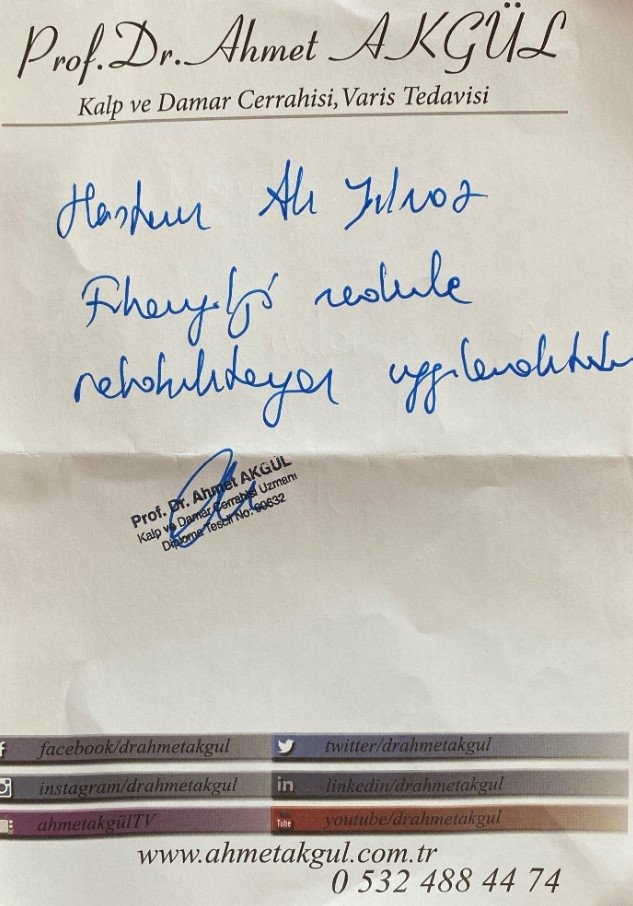 Prof. Dr. Ahmet AKGÜL
Kalp ve Damar Cerrahisi, Varis Tedavisi
Hastam Ali Yılmaz
uygulanmaktadır
Prof. Dr. Ahmet AKGÜL
Kalp ve Damar Cerrahisi Uzmanı
Diploma Tescil No: 90632
facebook/drahmetakgul
twitter/drahmetakgul
instagram/drahmetakgul
in linkedin/drahmetakgul
ahmetakgülTV
You Tube youtube/drahmetakgul
www.ahmetakgul.com.tr
0 532 488 44 74